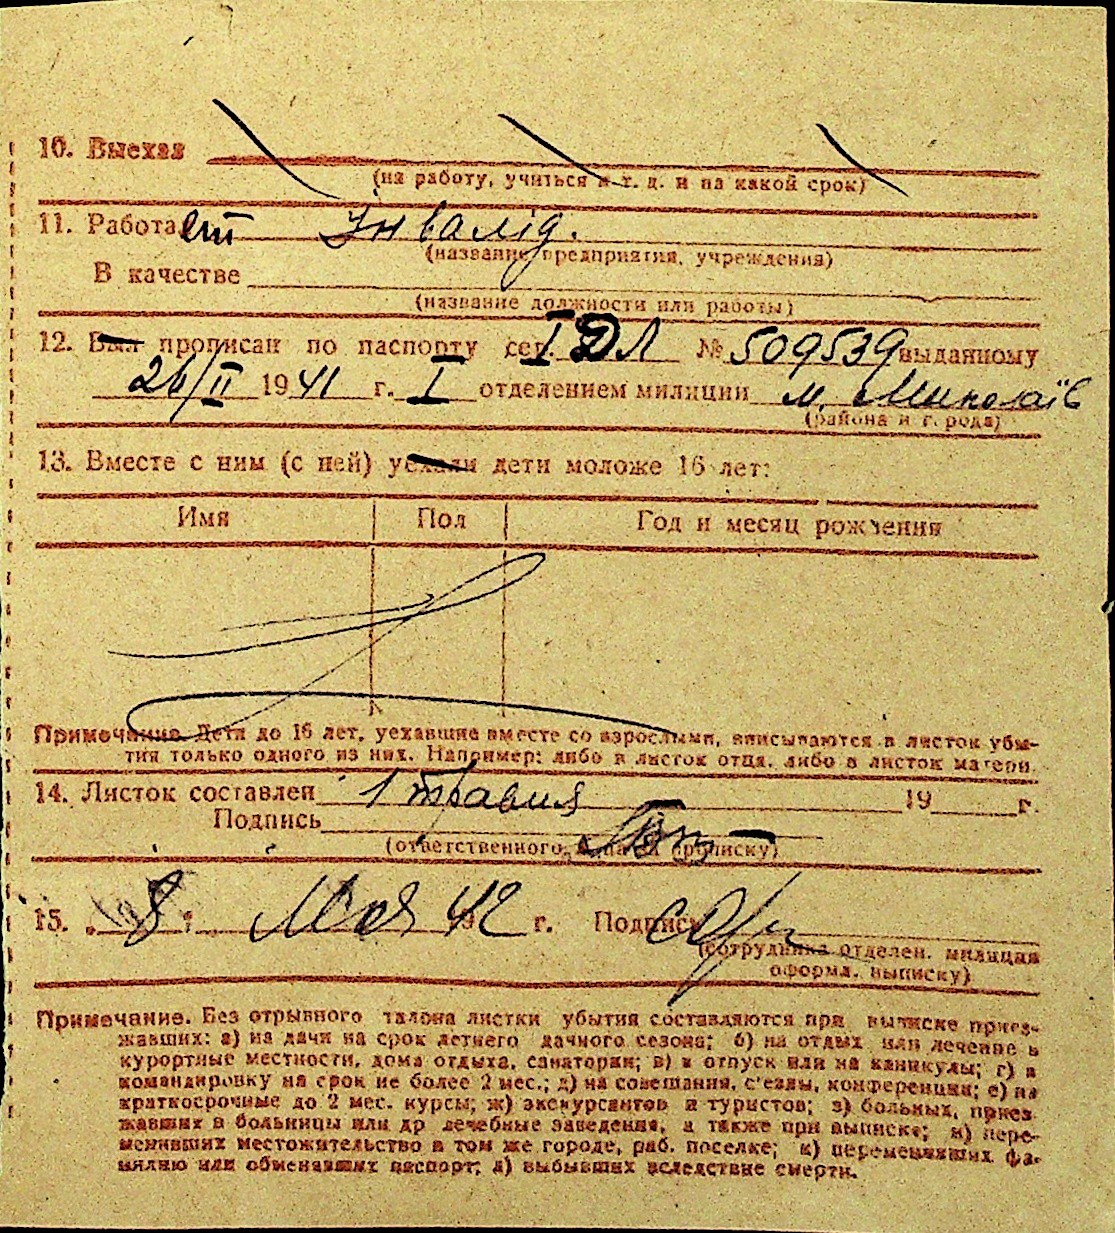 10. Выехал
(на работу, учиться и т. д. и на какой срок)
11. Работает Інвалід.
(название предприятия, учреждения)
В качестве
(название должности или работы)
12. Был прописан по паспорту сер. I ДЛ № 509539 выданному
26/II 1941 г. I отделением милиции м. Миколаїв
(района и города)
13. Вместе с ним (с ней) уехали дети моложе 16 лет:
Имя Пол Год и месяц рождения
Примечание. Дети до 16 лет, уехавшие вместе со взрослыми, вписываются в листок убы-
тия только одного из них. Например: либо в листок отца, либо в листок матери.
14. Листок составлен 1 травня 19 г.
Подпись
(ответственного за прописку)
15. 8 Мая 42 г. Подпись
(сотрудника отделен. милиции
оформл. выписку)
Примечание. Без отрывного талона листки убытия составляются при выписке приез-
жавших: а) на дачи на срок летнего дачного сезона; б) на отдых или лечение в
курортные местности, дома отдыха, санатории; в) в отпуск или на каникулы; г) в
командировку на срок не более 2 мес.; д) на совещания, с'езды, конференции; е) на
краткосрочные до 2 мес. курсы; ж) экскурсантов и туристов; з) больных, приез-
жавших в больницы или др лечебные заведения, а также при выписке; и) пере-
менивших местожительство в том же городе, раб. поселке; к) переменивших фа-
милию или обменявших паспорт; л) выбывших вследствие смерти.